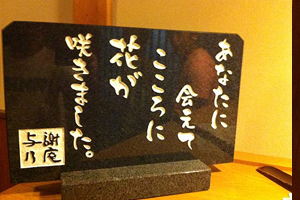 あなたに
会えて
こころに
花が
咲きました。
謝庵
与乃